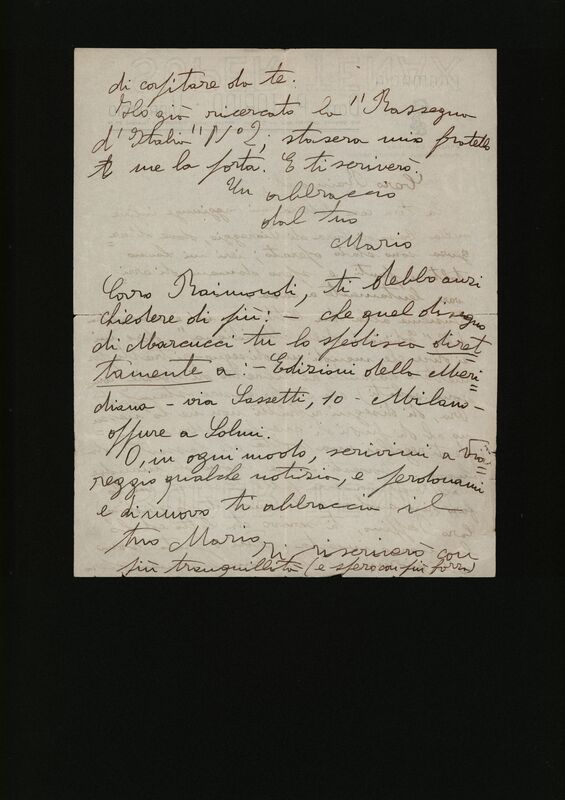 di capitare da te.
Ho già ricercato la "Rassegna
d'Italia"; stasera mio fratello
me la porta. E ti scriverò.
Un abbraccio
dal tuo
Mario
Caro Raimondi, ti debbo anzi
chiedere di più: – che quel disegno
di Marcucci tu lo spedisca diret
tamente a: – Edizioni della Meri
diana – via Sassetti, 10 – Milano –
oppure a Solmi.
O, in ogni modo, scrivimi a Via=
reggio qualche notizia, e perdonami
e di nuovo ti abbraccia il
tuo Mario
Ti riscriverò con
più tranquillità (e spero con più forza)